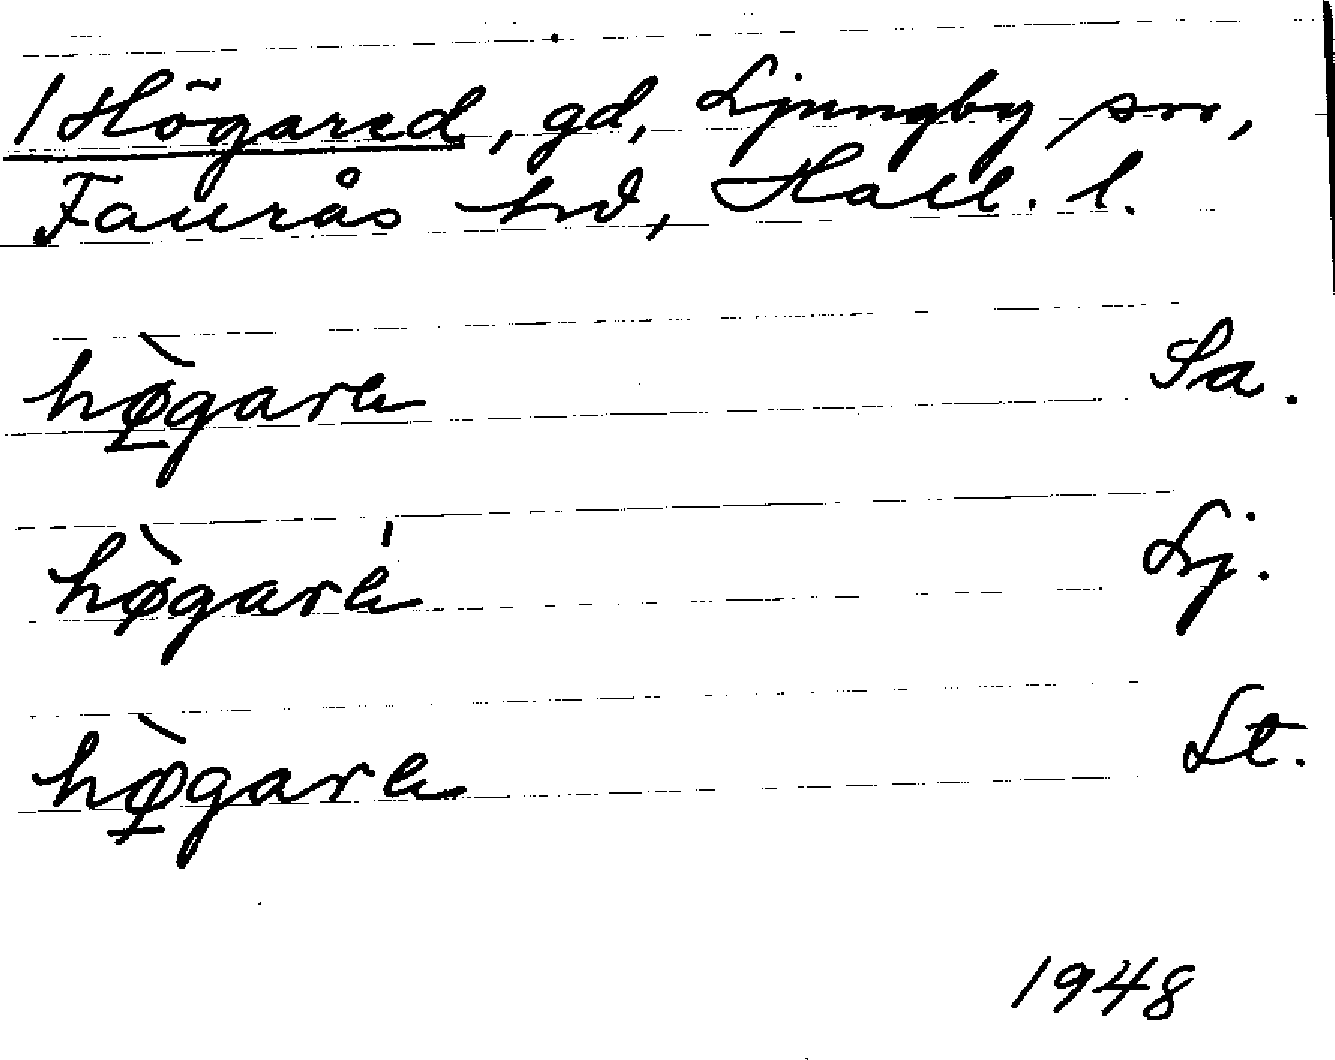 / Högared, gd, Ljungby sn,
Faurås hd, Hall. l.
hø̱̀garε Sa.
hø̀garε̍ Lj.
hø̱̀garε St.
1948